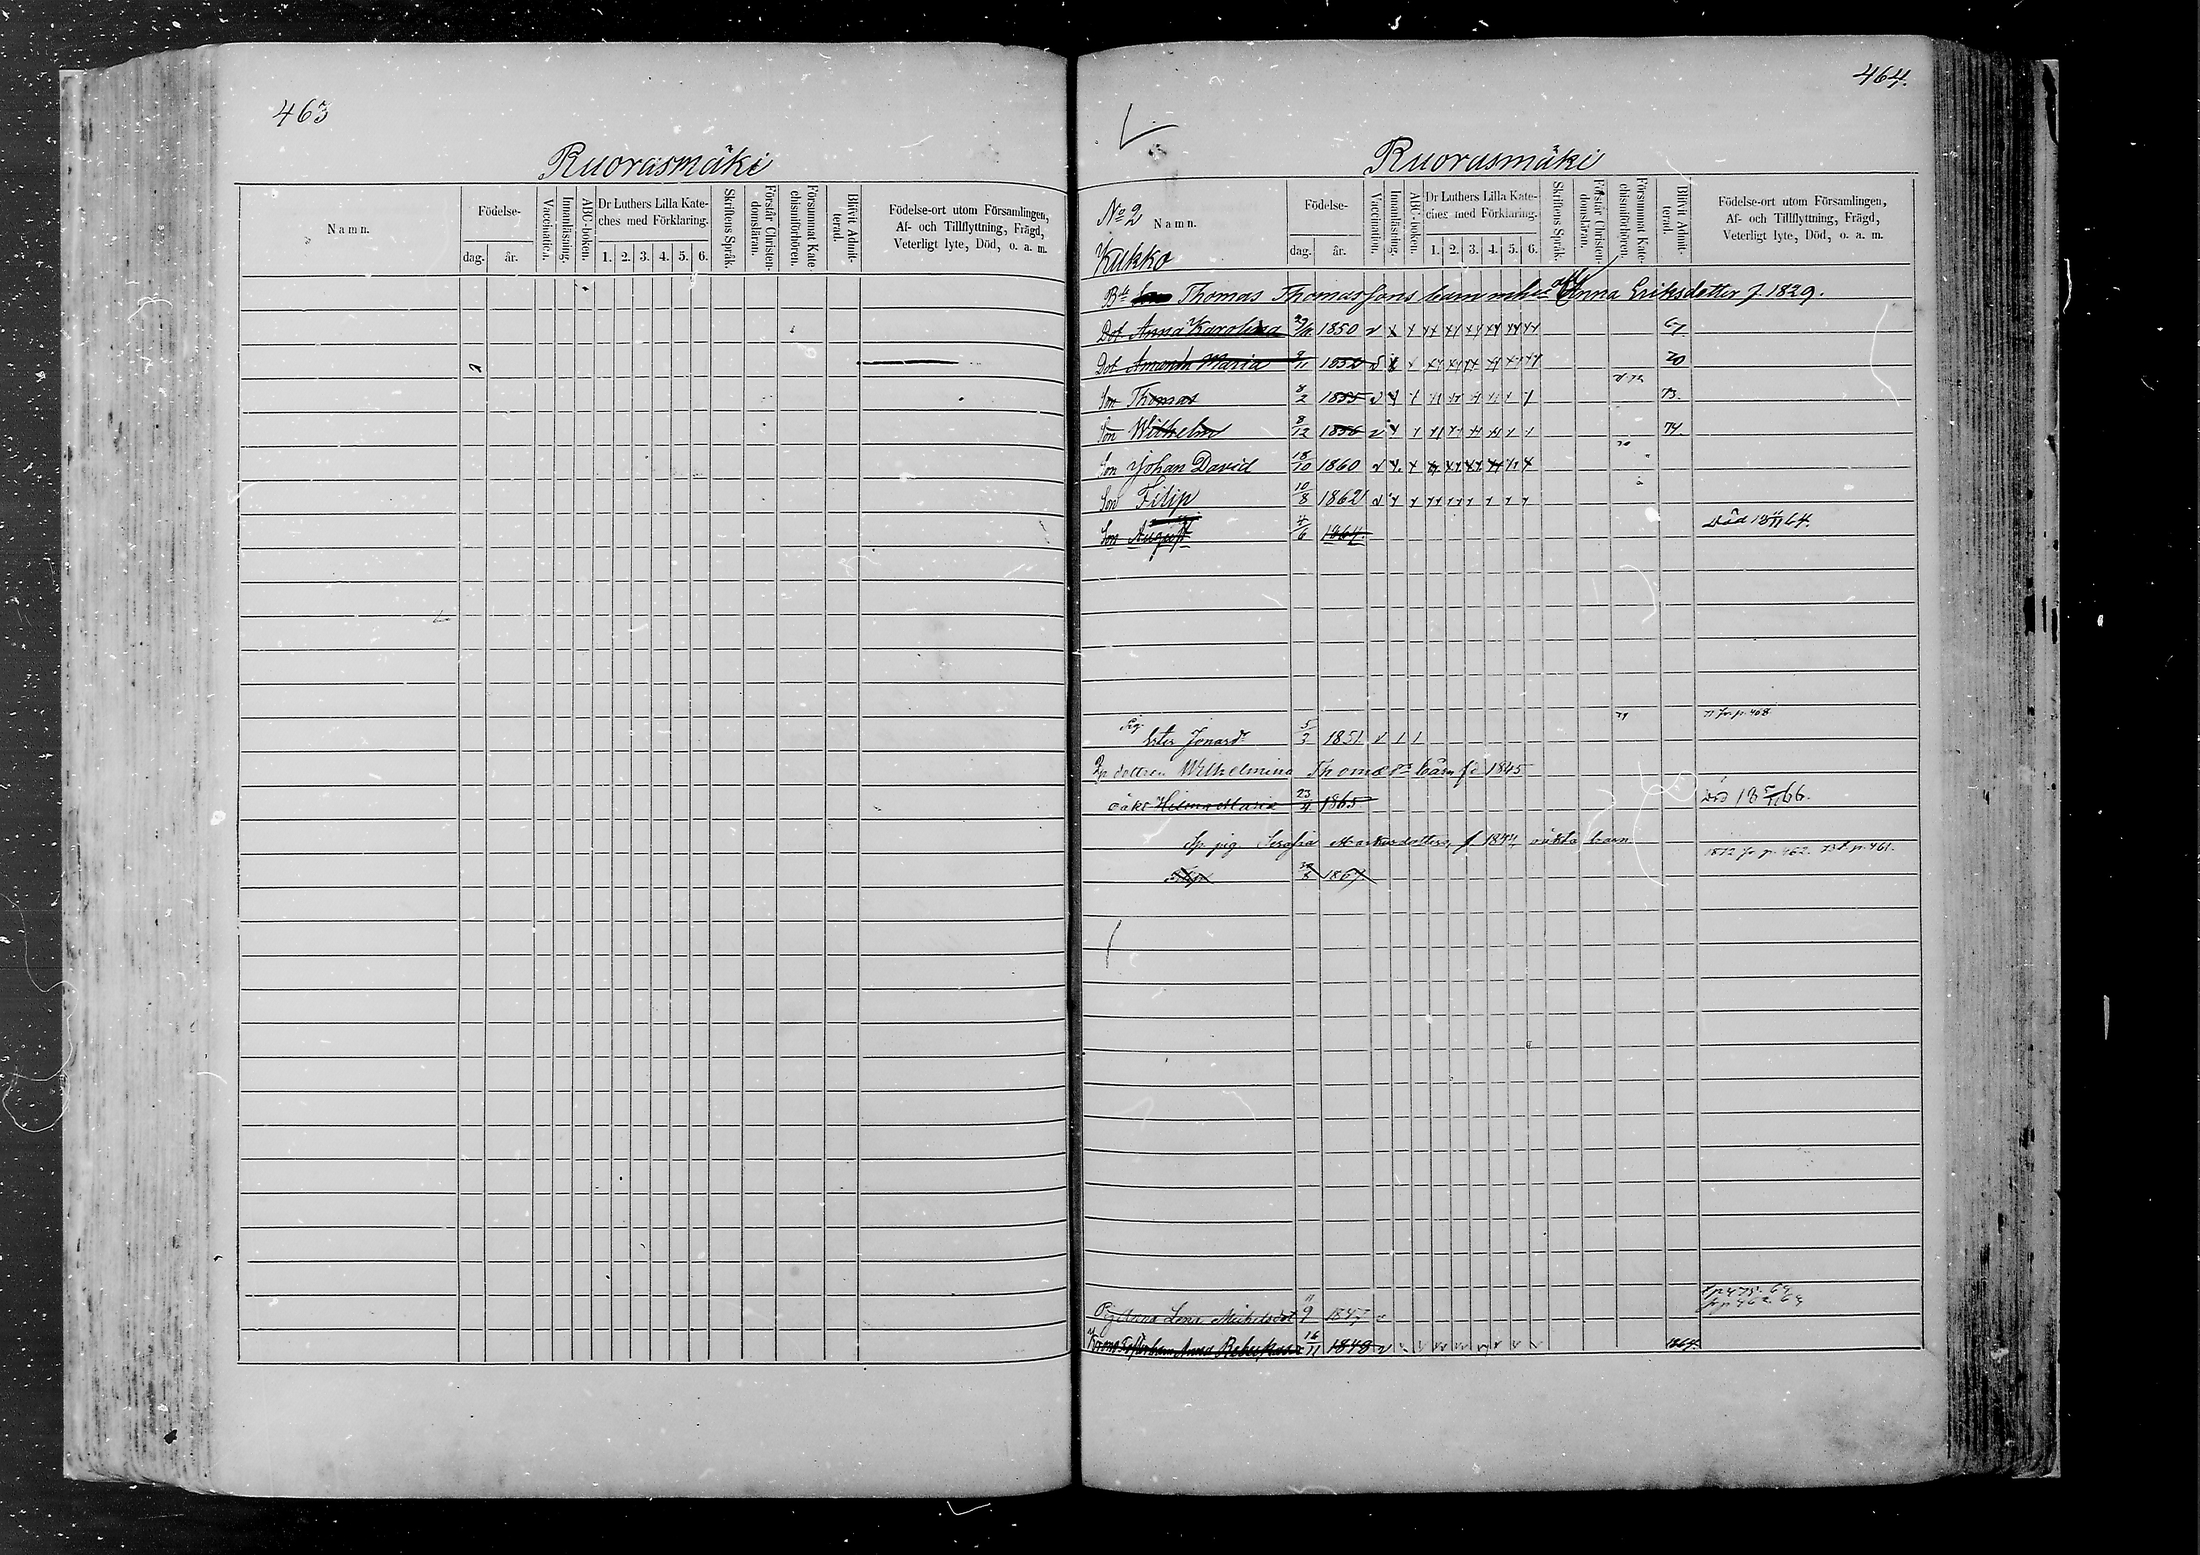 463
Ruorasmäki
Namn.
Födelse-
dag.
år.
Vaccination.
Innanläsning.
ABC-boken.
Dr Luthers Lilla Kate-
ches med Förklaring.
1. 2. 3. 4. 5. 6.
Skriftens Språk.
Förstår Christen-
domsläran.
Försummat Kate-
chismiförhören.
Blifvit Admit-
terad.
Födelse-ort utom Församlingen,
Af- och Tillflyttning, Frägd,
Veterligt lyte, Död, o. a. m.
464.
Ruorasmäki
No 2
Namn.
Kukko
Födelse-
dag.
år.
Vaccination.
Innanläsning.
ABC-boken.
Dr Luthers Lilla Kate-
ches med Förklaring.
1. 2. 3. 4. 5. 6.
Skriftens Språk.
Förstår Christen-
domsläran.
Försummat Kate-
chismiförhören.
Blifvit Admit-
terad.
Födelse-ort utom Församlingen,
Af- och Tillflyttning, Frägd,
Veterligt lyte, Död, o. a. m.
Thomas Thomassons barn Anna Eriksdotter f. 1829.
Dot Anna Karolina 1850 67
Dot Amanda Maria 9/11 1852 70
Son Thomas 8/2 1855 73.
Son Wilhelm 8/12 1856 74.
Son Johan David 18/10 1860
Son Filip 10/8 1862
Son August 4/6 1864. Död 18 64.
Pig. Jonasd. 5/3 1851 fr. p. 468
dottren Wilhelmina Thomæ barn fd 1845
oäkt Helena Maria 23/4 1865 Död 18 5/11 66.
pig Serafia Markusdotters, f. 1844 oäkta barn
1872 fr. p. 462. 73 t. p. 461.
Filip 1867
Pig Anna Lena Michelsdot 11/9 1847 fr p 462 64
Anna Rebecka 16/11 1848 1864.